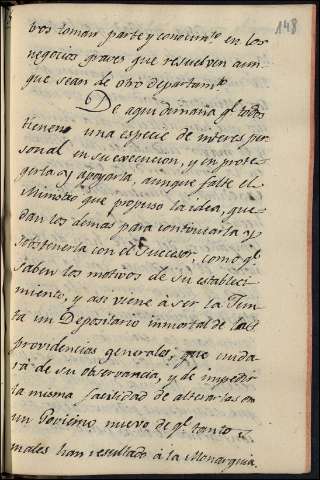 148
bros toman parte y conocim.to en los
negocios graves que resuelven aun-
que sean de otro departam.to
De aqui dimaña q.e todos
tienen una especie de interes per-
sonal en su execucion, y en prote-
gerla y apoyarla, aunque falte el
Ministro que propuso la idea, que-
dan los demas para continuarla y
sostenerla con el Succesor, como q.e
saben los motivos de su estableci-
miento, y asi viene à ser la Jun-
ta un Depositario inmortal de las
providencias generales, que cuida-
rá de su observancia, y de impedir
la misma facilidad de alterarlas en
un Govierno nuevo de q.e tantos
males han resultado à la Monarquia.